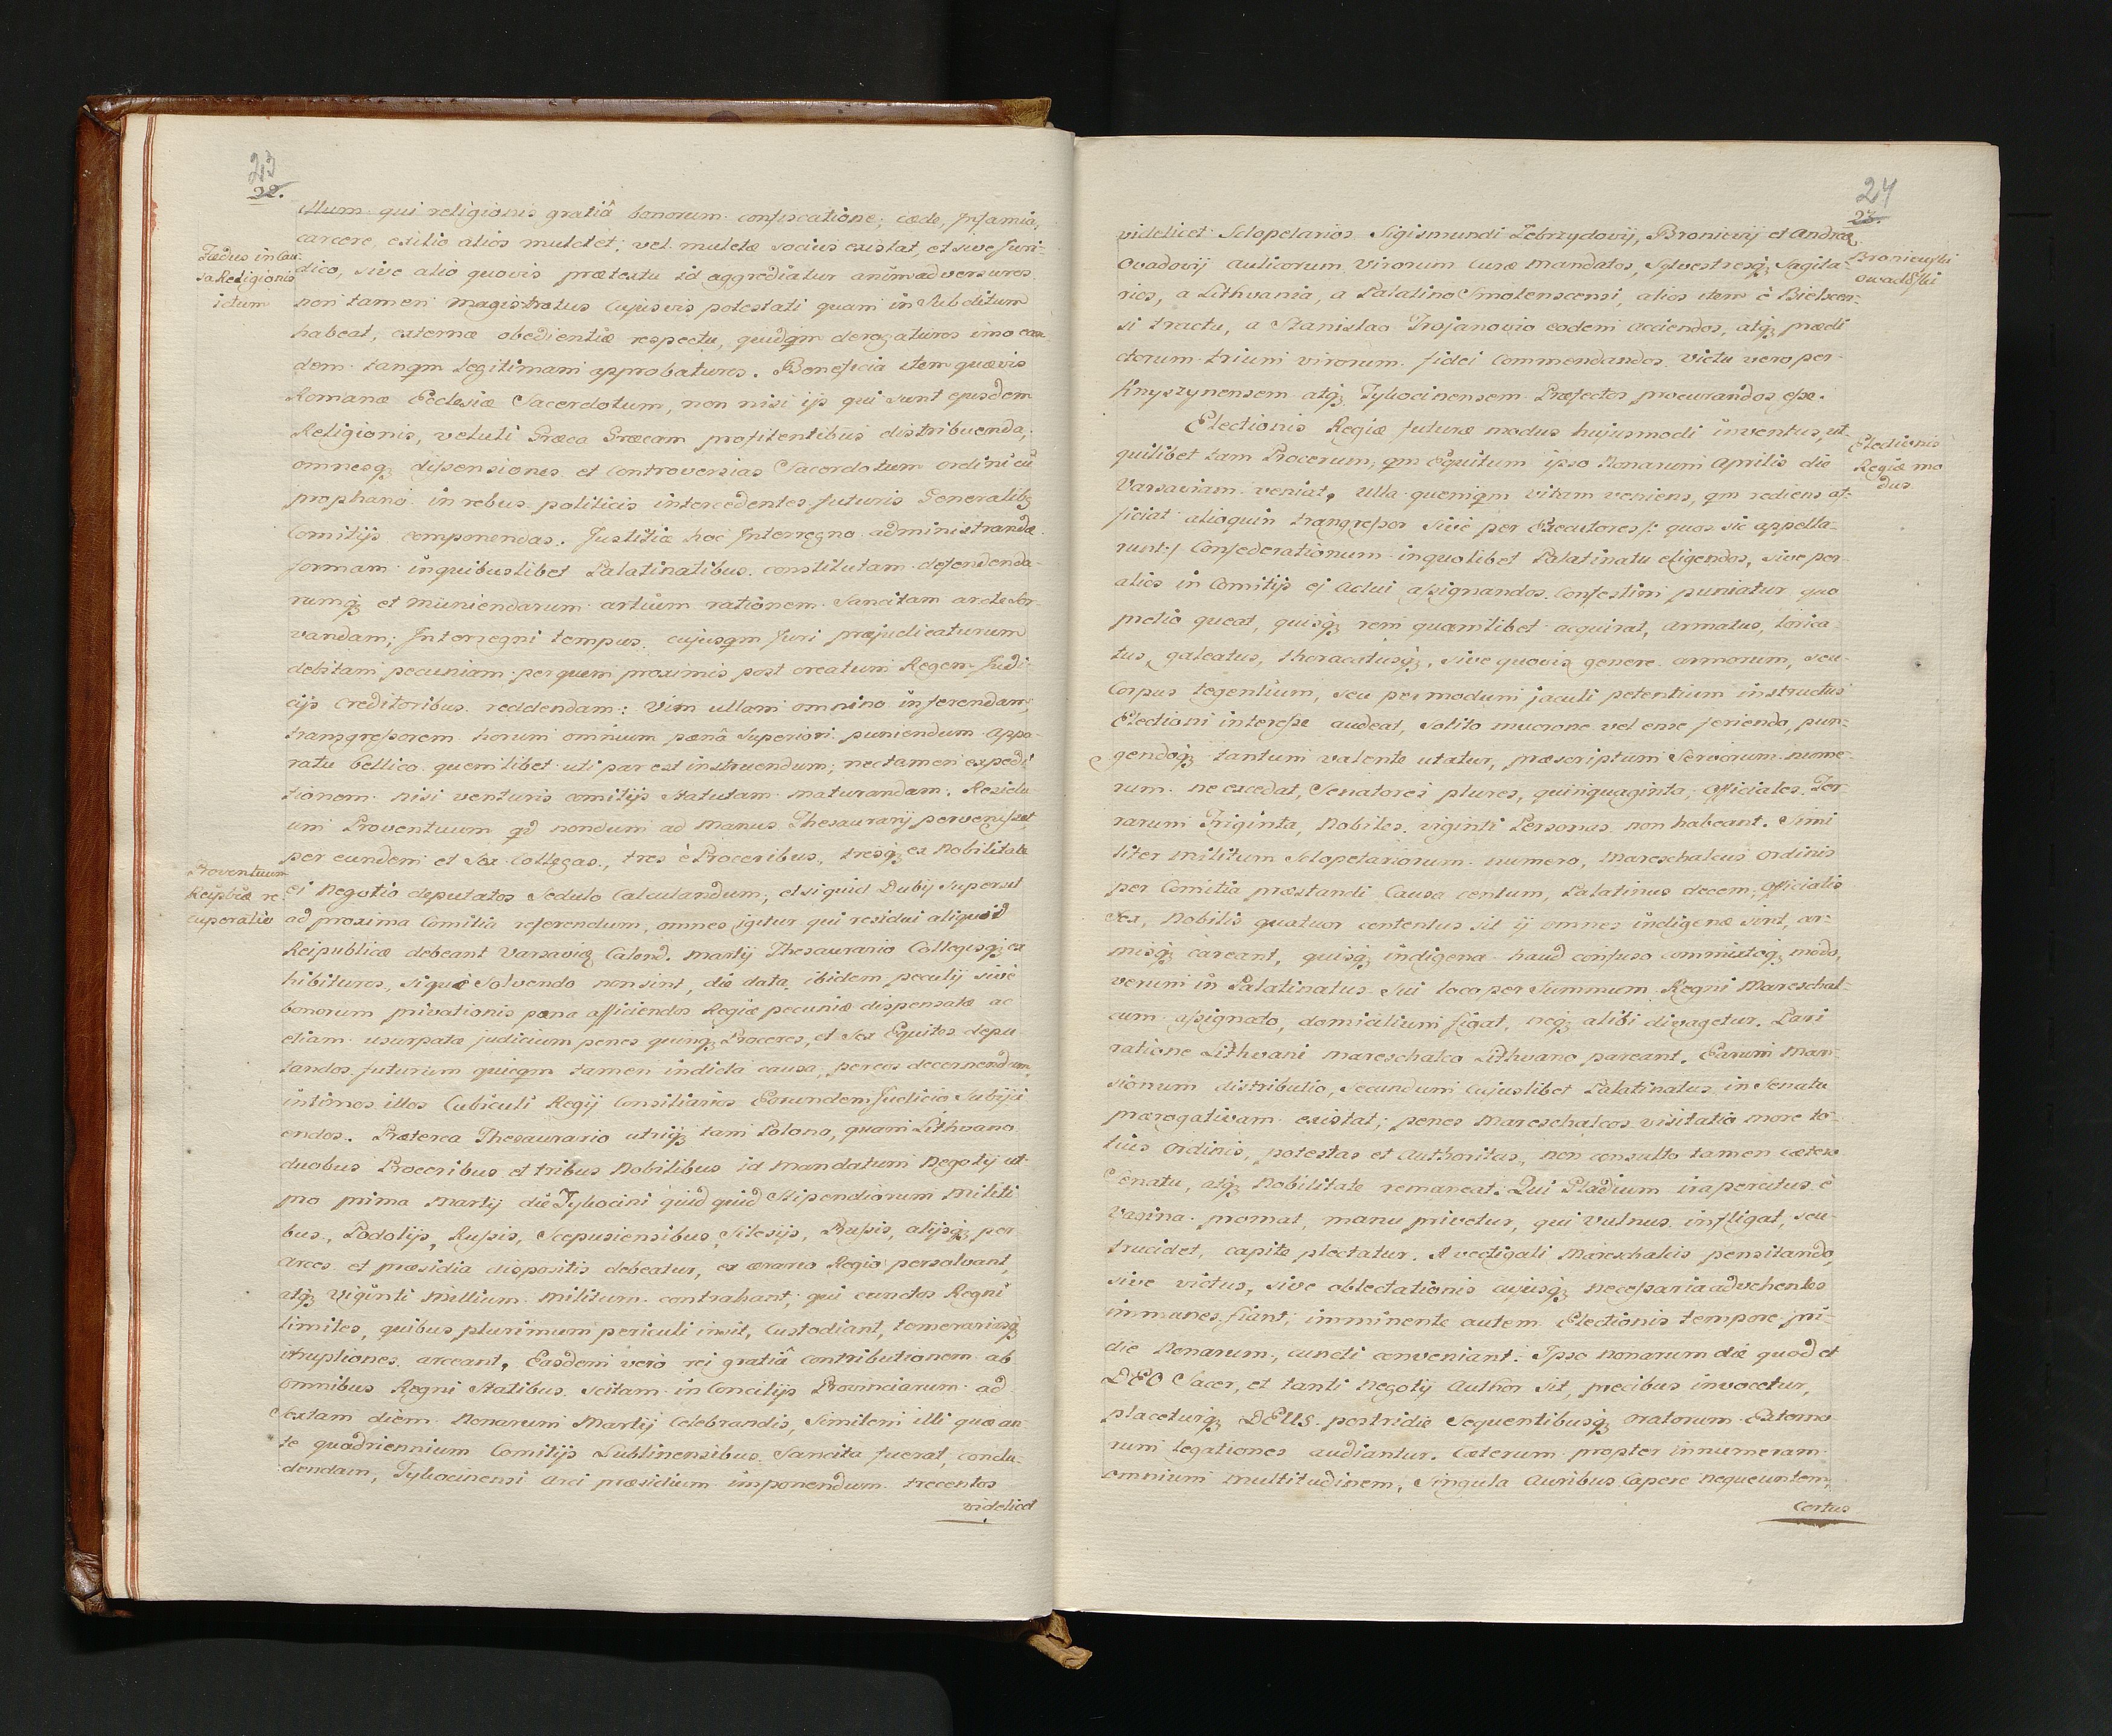 23
22.
illum qui religionis gratiâ bonorum confiscatione, cæde, Infamia,
carcere, exilio alios mulctet: vel mulctæ socius existat, et sive Juri-
Fædus in Cau-
sa Religionis
ictum
dico, sive alio quovis prætextu id aggrediatur animadversuros
non tamen magistratus cujusvis potestati quam in Subditum
habeat, externæ obedientiæ respectu, quidqm derogaturos imo ean-
dem tanqm legitimam approbaturos. Beneficia item quævis
Romanæ Ecclesiæ Sacerdotum, non nisi ijs qui sunt ejusdem
Religionis, veluti Græca Græcam profitentibus distribuenda;
omnesq; dissensiones et controversias Sacerdotum ordini cū
prophano in rebus politicis intercedentes futuris Generalib;
Comitijs componendas. Justitiæ hoc Interregno administrandæ
formam inquibuslibet Palatinatibus constitutam defendenda-
rumq; et muniendarum artium rationem Sancitam arcte ser-
vandam; Interregni tempus cujusqm Juri præjudicaturum
debitam pecuniam perquem proximis post creatum Regem Judi-
cijs Creditoribus reddendam: Vim ullam omnino inferendam,
transgressorem horum omnium pænâ Superiori puniendum appa-
ratu bellico quemlibet uti par est instruendum; nec tamen expedi-
tionem nisi venturis comitijs Statutam maturandam. Residu-
um Proventuum qd nondum ad Manus Thesaurarij pervenisset,
per eundem et Sex Collegas, tres è Proceribus, tresq; ex Nobilitate
Proventuum
Reipbcæ re-
cuperatio
ei Negotio deputatos Sedulo Calculandum, et si quid Dubij Supersit
ad proxima Comitia referendum, omnes igitur qui residui aliquid
Reipublicæ debeant Varsaviæ Calend. Martij Thesaurario Collegisq; ex-
hibituros, si qui è Solvendo non sint, die data ibidem peculij sive
bonorum privationis pæna afficiendos Regiæ pecuniæ dispensatæ ac
etiam usurpatæ judicium penes quinq; Proceres, et Sex Equites depu-
tandos futurum quicqm tamen indicta causa, per eos decernendum,
intimos illos Cubiculi Regij Consiliarios Eorundem Judicio Subijci-
endos. Præterea Thesaurario utriq; tam Polono, quam Lithvano
duobus Proceribus et tribus Nobilibus id mandatum Negotij ut
pro prima Martij die Tykocini quid quid Stipendiorum Militi-
bus, Podolijs, Russis, Scepusiensibus, Silesijs, Prussis, alijsq; per
Arces et præsidia dispositis debeatur, ex ærario Regio persolvant,
atq; Viginti Millium Militum contrahant, qui cunctos Regni
limites, quibus plurimum periculi insit, Custodiant, temerariasq;
irruptiones arceant. Easdem verò rei gratiâ contributionem ab
omnibus Regni Statibus scitam in Concilijs Provinciarum ad
Sextam diem Nonarum Martij Celebrandis, Similem illi quæ an-
te quadriennium Comitijs Lublinensibus Sancita fuerat, conclu-
dendam, Tykocinensi Arci præsidium imponendum trecentos
videlicet
24
23.
videlicet Sclopetarios Sigismundi Zebrzydovij, Bronievij et Andreæ
Broniewski
Owadoski
Ovadovij Aulicorum Virorum Curæ mandatos, Sylvestresq; Sagitta-
rios, a Lithvania, a Palatino Smolenscensi, alios item è Bielscen-
si tractu, a Stanislao Trojanovio eodem acciendos, atq; prædi-
ctorum trium virorum fidei commendandos. Victu vero per
Knyszynensem atq; Tykocinensem Præfectos procurandos esse.
Electionis Regiæ futuræ modus hujusmodi inventus, ut
Electionis
Regiæ mo
dus.
quilibet tam Procerum, qm Equitum ipso Nonarum Aprilis die
Varsaviam veniat, Ulla quemqm vitam veniens, qm rediens af-
ficiat alioquin trangressor sive per Executores /: quos sic appella-
runt :/ Confederationum inquolibet Palatinatu eligendos, sive per
alios in Comitijs ej Actui assignandos Confestim puniatur quo
pretio queat, quisq; rem quamlibet acquirat, Armatus, lorica-
tus, galeatus, thoracatusq;, sive quovis genere armorum, seu
Corpus tegentium, seu per modum jaculi petentium instructus
Electioni interesse audeat, Solito mucrone vel ense feriendo, pun-
gendoq; tantum valente utatur, præscriptum Servorum nume-
rum ne excedat, Senatores plures, quinquaginta, Officiales Ter-
rarum Triginta, Nobiles viginti Personas non habeant. Simi
liter militum Sclopetariorum numero, Mareschalcus Ordinis
per Comitia præstandi Causa centum, Palatinus decem, Officialis
Sex, Nobilis quatuor contentus sit ij omnes indigenæ sint, ar-
misq; careant, quisq; indigena haud confuso commixtoq; modo,
verum in Palatinatus Sui loco per Summum Regni Mareschal-
cum assignato, domicilium figat, neq; alibi divagetur. Pari
ratione Lithvani Mareschalco Lithvano pareant. Earum Man-
sionum distributio, Secundum Cujuslibet Palatinatus in Senatu
prærogativam existat; penes Mareschalcos visitatio more to-
tius Ordinis, potestas et Authoritas, non consulto tamen cætero
Senatu, atq; Nobilitate remaneat. Qui Gladium ira percitus è
Vagina promat, manu privetur, qui Vulnus infligat, seu
trucidet, capite plectatur. A vectigali Mareschalcis pensitando,
sive victus, sive oblectationis cujusq; Necessaria advehentes
immunes fiant; imminente autem Electionis tempore pri-
die Nonarum, cuncti conveniant. Ipso Nonarum die quod et
DEO Sacer, et tanti Negotij Author Sit, precibus invocetur,
placeturq; DEUS postridie Sequentibusq; Oratorum Externo-
rum legationes audiantur. Cæterum propter innumeram
omnium Multitudinem, Singula Auribus Capere nequeuntem,
Certus